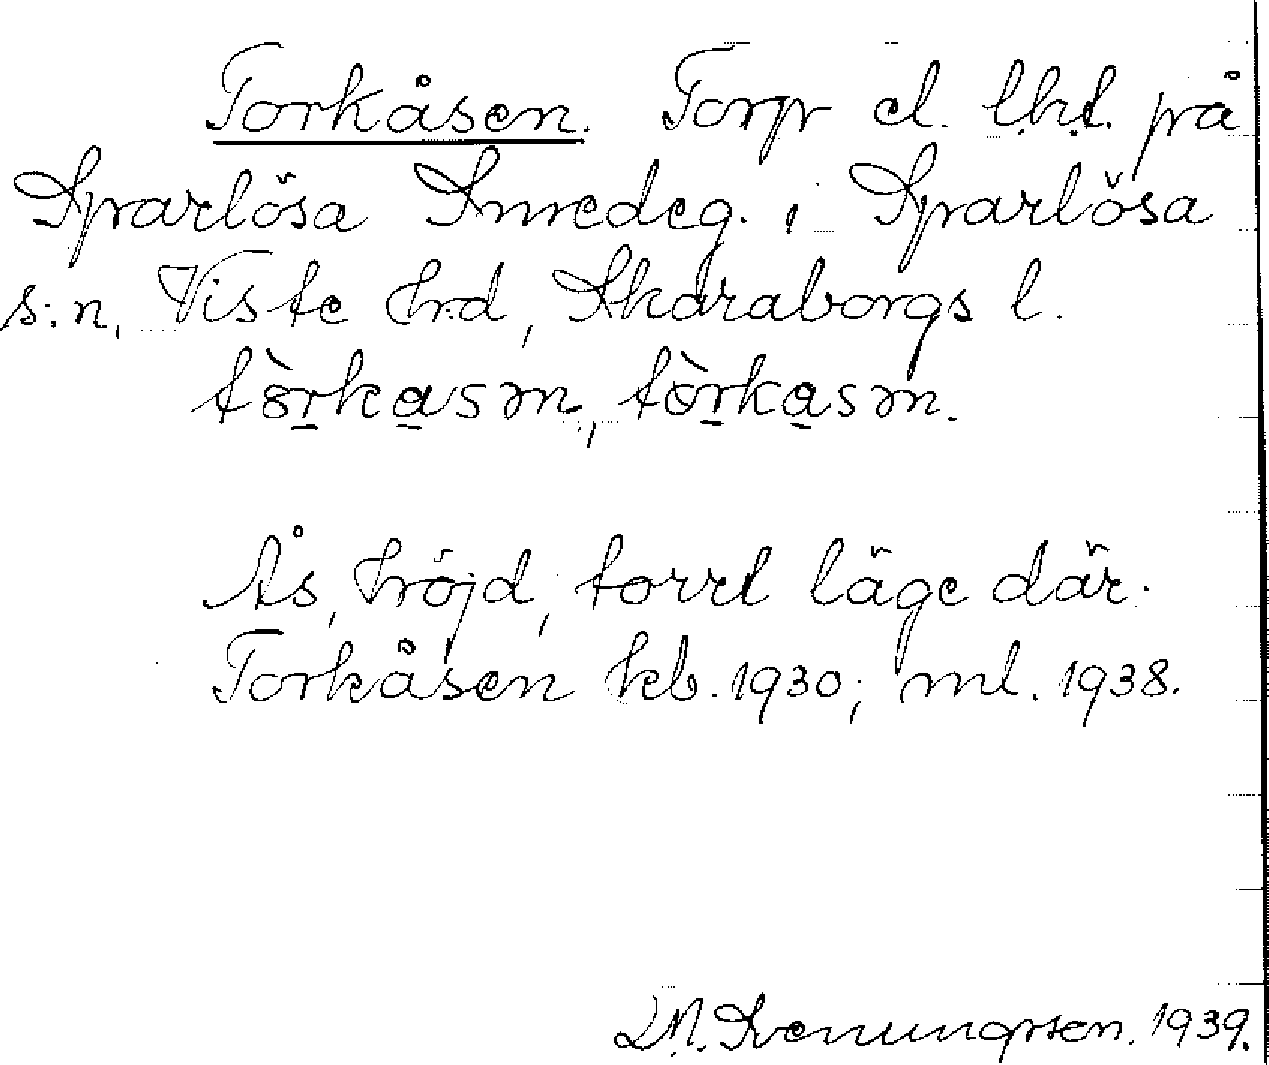 Torkåsen. Torp el. lht. på
Sparlösa Smedeg. i Sparlösa
s:n, Viste hrd, Skaraborgs l.
tòrkasən, tòrkasən.
Ås, höjd, torrt läge där.
Torkåsen kb. 1930; ml. 1938.
1939.